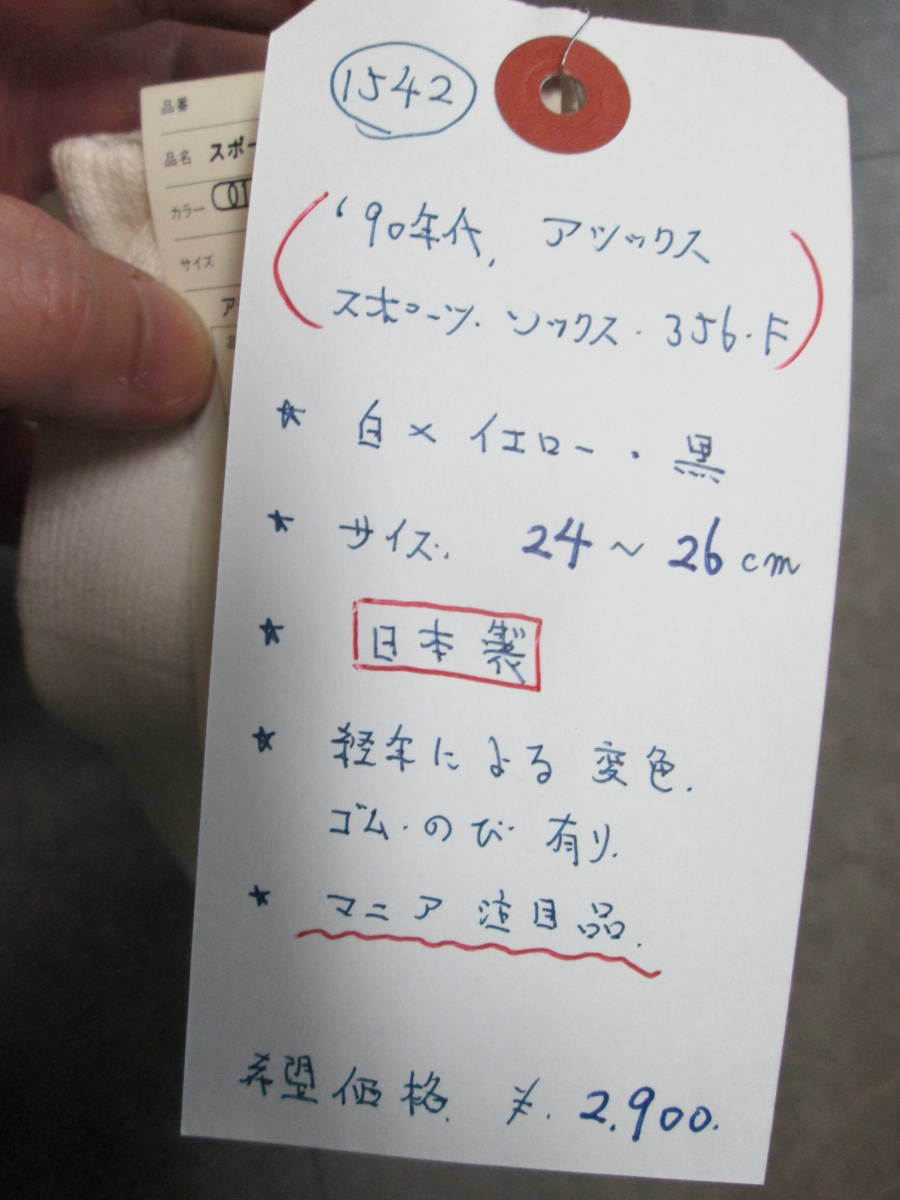 1542
'90年代, アシックス
スポーツ. ソックス. 356.F
★ 白×イエロー・黒
★ サイズ. 24～26cm
★ 日本製
★ 経年による変色.
ゴム・のび 有り.
★ マニア 注目品.
希望価格. ¥. 2,900.
品番
品名 スポー
カラー
サイズ
ア